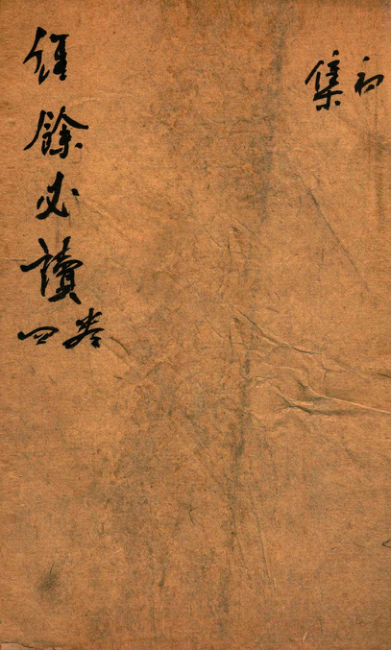 初集
經餘必讀
卷四